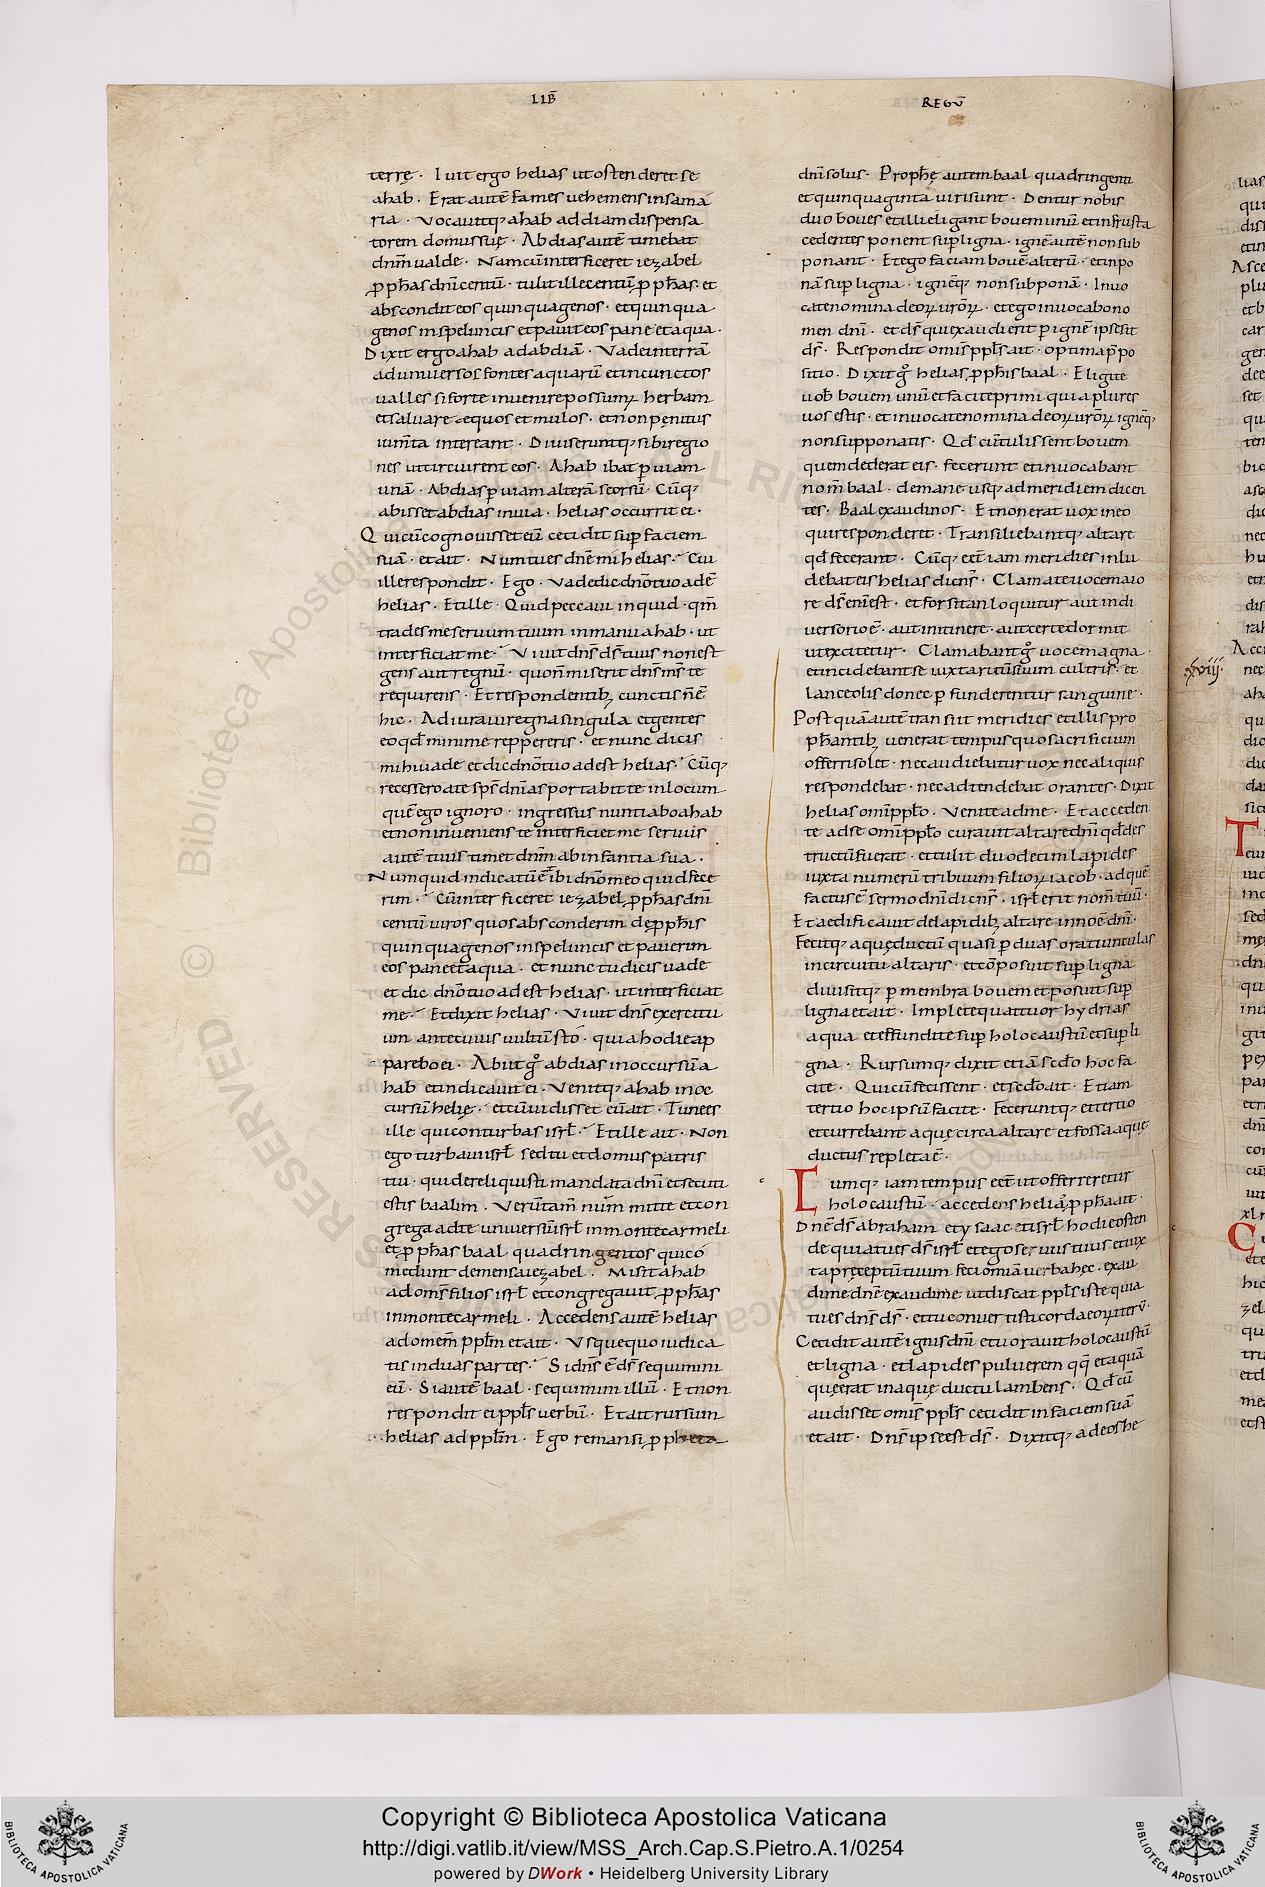 LIB̄
REGV̄
terrę · Iuit ergo helias ut ostenderet se
ahab · Erat autē fames uehemens in sama
ria · Vocauitq; ahab abdiam dispensa
torem domus suę · Abdias autē timebat
dn̄m ualde · Nam cū interficeret iezabel
ꝓph̄as dn̄i centū · tulit ille centū ꝓph̄as · et
abscondit eos quinquagenos · et quinqua
genos in speluncis et pauit eos pane et aqua ·
Dixit ergo ahab ad abdiā · Vade in terrā
ad uniuersos fontes aquarū et in cunctos
ualles si forte inuenire possumꝰ herbam
et saluare equos et mulos · et non pęnitus
ium̄ta intereant · Diuiseruntq; sibi regio
nes ut circuirent eos · Ahab ibat ꝑ uiam
unā · Abdias ꝑ uiam alterā seorsū · Cūq;
abisset abdias in uia · helias occurrit ei ·
Qui cū cognouisset eū cecidit suꝑ faciem
suā · et ait · Num tu es dn̄e mi helias · Cui
ille respondit · Ego · Vade dic dn̄o tuo adē
helias · Et ille · Quid peccaui inquid · qm̄
trades me seruum tuum in manu ahab · ut
interficiat me · Viuit dn̄s ds̄ tuus non est
gens aut regnū · quo n̄ miserit dn̄s m̄s te
requirens · Et respondentibꝫ cunctis n̄ ē
hic · Adiuraui regna singula et gentes
eo qđ minime reppereris · et nunc dicis
mihi uade et dic dn̄o tuo adest helias · Cūq;
recessero a te sps̄ dn̄i asportabit te in locum
quē ego ignoro · ingressus nuntiabo ahab
et non inueniens te interficiet me seruus
autē tuus timet dn̄m ab infantia sua ·
Numquid indicatū ē tibi dn̄o meo quid fece
rim · Cū interficeret iezabel ꝓph̄as dn̄i
centū uiros quos absconderim de ꝓph̄is
quinquagenos in speluncis et pauerim
eos pane et aqua · et nunc tu dicis uade
et dic dn̄o tuo adest helias · ut interficiat
me · Et dixit helias · Viuit dn̄s exercitu
um ante cuius uultū sto · quia hodie ap
parebo ei · Abiit gͦ abdias in occursū a
hab et indicauit ei · Venitq; ahab in oc
cursū helię · et cū uidisset eū ait · Tu nees
ille qui conturbas isrł · Et ille ait · Non
ego turbaui isrł sed tu et domus patris
tui · qui dereliquisti mandata dn̄i et secuti
estis baalim · Verūtam̄ num̄ mitte et con
grega ad te uniuersū isrł in monte carmeli
et ꝓph̄as baal quadringentos qui co
medunt de mensa iezabel · Misit ahab
ad om̄s filios isrł et congregauit ꝓph̄as
in monte carmeli · Accedens autē helias
ad omem̄ ppłm et ait · Vsquequo iudica
tis in duas partes · Si dn̄s ē ds̄ sequimini
eū · Si autē baal · sequimini illū · Et non
respondit ei ppłs uerbū · Et ait rursum
helias ad ppłm · Ego remansi ꝓpheta
dn̄i solus · Proph̄ę autem baal quadringenti
et quinquaginta uiri sunt · Dentur nobis
duo boues et illi eligant bouem unū et in frusta
cedentes ponent suꝑ ligna · ignē autē non sub
ponant · Et ego faciam bouē alterū · et inpo
nā suꝑ ligna · ignēq; non subponā · Inuo
cate nomina deoꝝ uroꝝ · et ego inuocabo no
men dn̄i · et ds̄ qui exaudierit ꝑ ignē ipse sit
ds̄ · Respondit omīs ppłs ait · optima ꝓpo
sitio · Dixit gͦ helias ꝓph̄is baal · Eligite
uob̄ bouem unū et facite primi quia plures
uos estis · et inuocate nomina deoꝝ uroꝝ ignēq;
non supponatis · Qđ cū tulissent bouem
quem dederat eis · fecerunt et inuocabant
nom̄ baal · de mane usq; ad meridiem dicen
tes · Baal exaudi nos · Et non erat uox in eo
qui responderet · Transiliebantq; altare
qđ fecerant · Cūq; eēt iam meridies inlu
debat eis helias dicn̄s · Clamate uoce maio
re ds̄ enī est · et forsitan loquitur aut in di
uersorio ē · aut in itinere · aut certe dormit
ut excitetur · Clamabant gͦ uoce magna
et incidebant se iuxta ritū suum cultris · et
lanceolis donec ꝑfunderentur sanguine ·
Postquā autē transiit meridies et illis pro
ph̄antibꝫ uenerat tempus quo sacrificium
offerri solet · nec audiebatur uox nec aliquis
respondebat · nec adtendebat orantes · Dixit
helias omī ppło · Venite ad me · Et acceden
te ad se omī ppło curauit altare dn̄i qđ des
tructū fuerat · et tulit duodecim lapides
iuxta numerū tribuum filioꝝ iacob · ad quē
factus ē sermo dn̄i dicn̄s · isrł erit nom̄ tuū ·
Et aedificauit de lapidibꝫ altare in noē dn̄i ·
Fecitq; aquęductū quasi ꝑ duas oratiunculas
in circuitu altaris · et cōposuit suꝑ ligna
diuisitq; ꝑ membra bouem et posuit suꝑ
ligna et ait · Implete quattuor hydrias
aqua et effundite suꝑ holocaustū et suꝑ li
gna · Rursumq; dixit etiā sedo hoc fa
cite · Qui cū fecissent · et sedo ait · Etiam
tertio hoc ipsū facite · Feceruntq; et tertio
et currebant aquę circa altare et fossa aquę
ductus repleta ē ·
Cumq; iam tempus eēt ut offerreretur
holocaustū · accedens helias ꝓph̄a ait ·
Dn̄e ds̄ abraham et ysaac et isrł hodie osten
de quia tu es ds̄ isrł et ego seruus tuus et iux
ta pręceptū tuum feci omīa uerba hęc · exau
di me dn̄e exaudi me ut discat ppłs iste quia
tu es dn̄s ds̄ · et tu conuertisti corda eoꝝ iterū ·
Cecidit autē ignis dn̄i et uorauit holocaustū
et ligna · et lapides puluerem qq̄ et aquā
quę erat in aquę ductu lambens · Qđ cū
audisset omīs ppłs cecidit in faciem suā
et ait · Dn̄s ipse est ds̄ · Dixitq; ad eos he
xviij·
Copyright © Biblioteca Apostolica Vaticana
http://digi.vatlib.it/view/MSS_Arch.Cap.S.Pietro.A.1/0254
powered by DWork • Heidelberg University Library